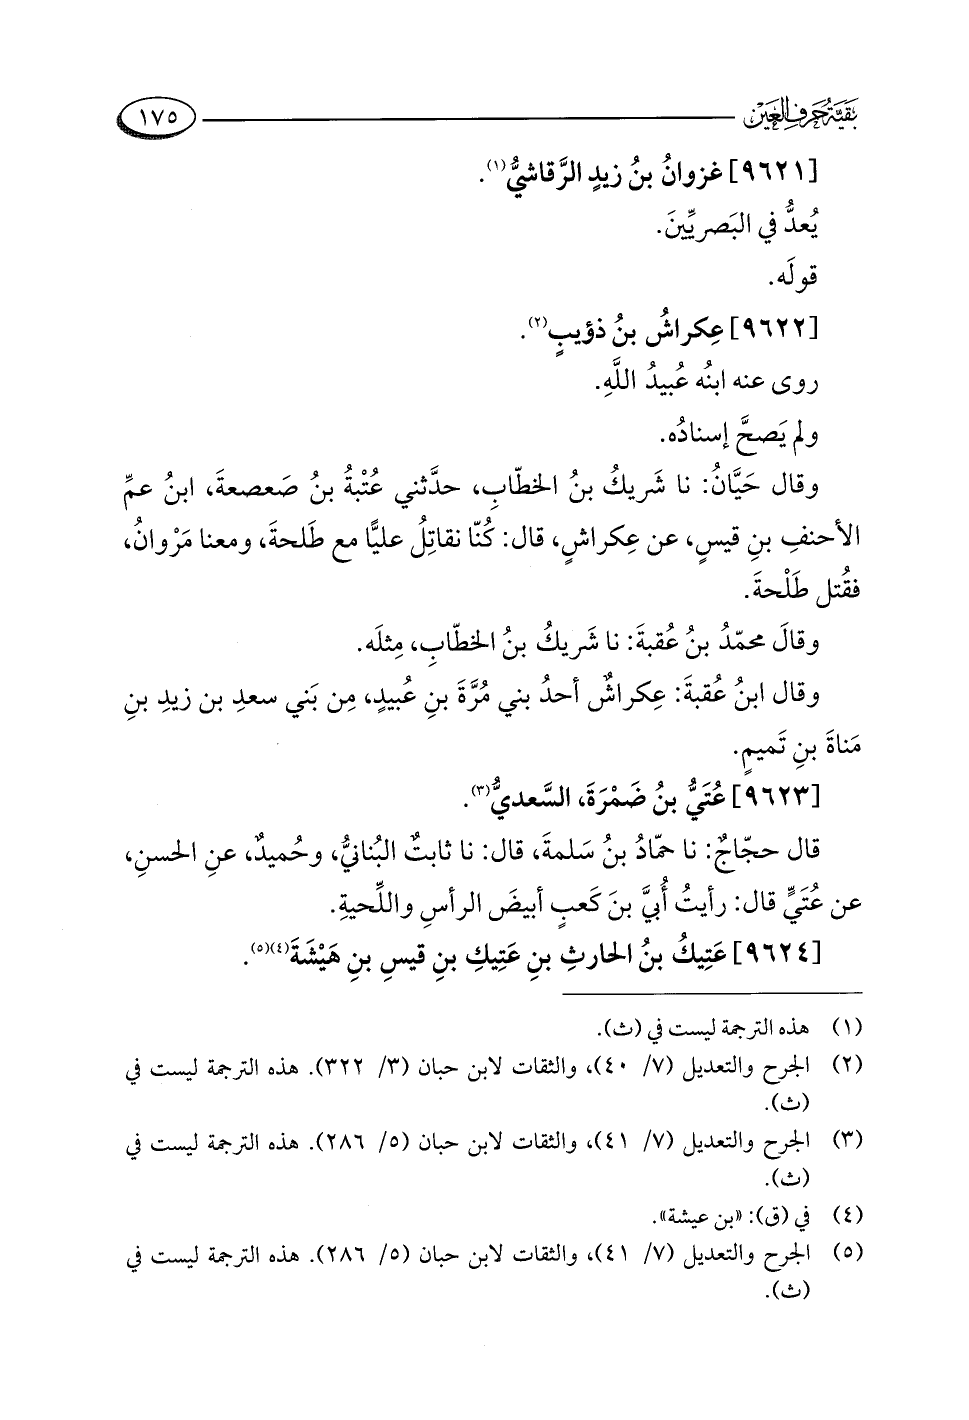 بقية حرف العين ١٧٥
[٩٦٢١] غزوانُ بنُ زيدٍ الرَّقاشيُّ(١).
يُعدُّ في البَصريِّينَ.
قولَه.
[٩٦٢٢] عِكراشُ بنُ ذؤيبٍ(٢).
روى عنه ابنُه عُبيدُ اللَّهِ.
ولم يَصحَّ إسنادُه.
وقال حَيَّانُ: نا شَريكُ بنُ الخطّابِ، حدَّثني عُتْبةُ بنُ صَعصعةَ، ابنُ عمِّ
الأحنفِ بنِ قيسٍ، عن عِكراشٍ، قال: كُنّا نقاتِلُ عليًّا مع طَلحةَ، ومعنا مَرْوانُ،
فقُتل طَلْحةَ.
وقالَ محمّدُ بنُ عُقبةَ: نا شَريكُ بنُ الخطّابِ، مِثلَه.
وقال ابنُ عُقبةَ: عِكراشٌ أحدُ بني مُرَّةَ بنِ عُبيدٍ، مِن بَني سعدِ بن زيدِ بنِ
مَناةَ بنِ تَميمٍ.
[٩٦٢٣] عُتَيُّ بنُ ضَمْرَةَ، السَّعديُّ(٣).
قال حجّاجٌ: نا حمّادُ بنُ سَلمةَ، قال: نا ثابتٌ البُنانيُّ، وحُميدٌ، عنِ الحسنِ،
عن عُتَيٍّ قال: رأيتُ أُبيَّ بنَ كَعبٍ أبيضَ الرأسِ واللِّحيةِ.
[٩٦٢٤] عَتِيكُ بنُ الحارثِ بنِ عَتِيكِ بنِ قيسِ بنِ هَيْشَةَ(٤)(٥).
(١) هذه الترجمة ليست في (ث).
(٢) الجرح والتعديل (٧/ ٤٠)، والثقات لابن حبان (٣/ ٣٢٢). هذه الترجمة ليست في
(ث).
(٣) الجرح والتعديل (٧/ ٤١)، والثقات لابن حبان (٥/ ٢٨٦). هذه الترجمة ليست في
(ث).
(٤) في (ق): «بن عيشة».
(٥) الجرح والتعديل (٧/ ٤١)، والثقات لابن حبان (٥/ ٢٨٦). هذه الترجمة ليست في
(ث).